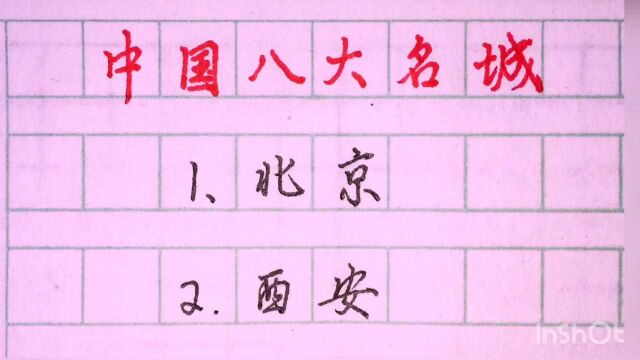 中国八大名城
1、北京
2.西安
InShOt